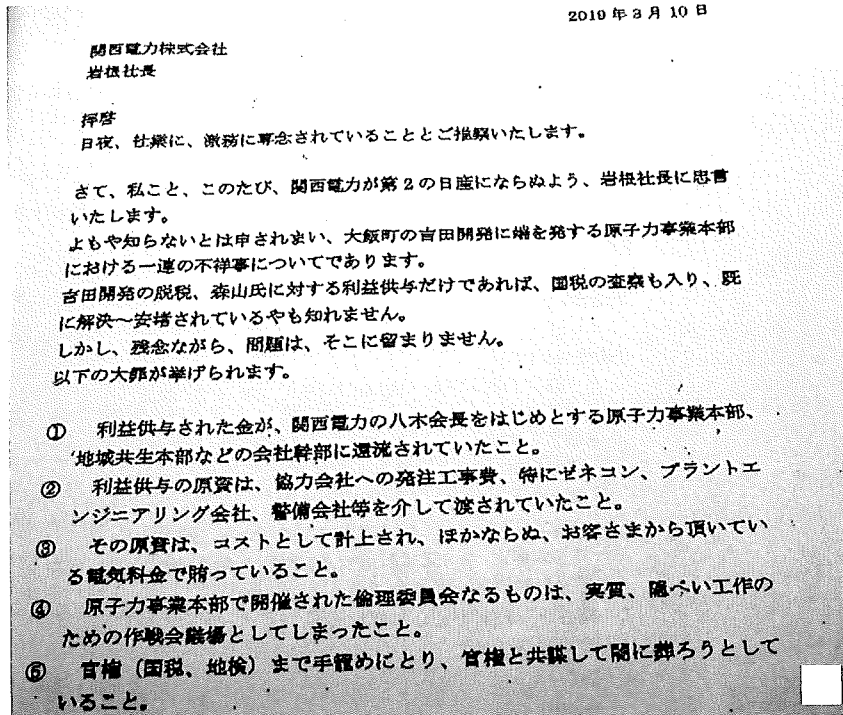 2019年3月10日
関西電力株式会社
岩根社長
拝啓
日夜、社業に、激務に専念されていることとご推察いたします。
さて、私こと、このたび、関西電力が第2の日産にならぬよう、岩根社長に忠言
いたします。
よもや知らないとは申されまい、大飯町の吉田開発に端を発する原子力事業本部
における一連の不祥事についてであります。
吉田開発の脱税、森山氏に対する利益供与だけであれば、国税の査察も入り、既
に解決～安堵されているやも知れません。
しかし、残念ながら、問題は、そこに留まりません。
以下の大罪が挙げられます。
① 利益供与された金が、関西電力の八木会長をはじめとする原子力事業本部、
地域共生本部などの会社幹部に還流されていたこと。
② 利益供与の原資は、協力会社への発注工事費、特にゼネコン、プラントエ
ンジニアリング会社、警備会社等を介して渡されていたこと。
③ その原資は、コストとして計上され、ほかならぬ、お客さまから頂いてい
る電気料金で賄っていること。
④ 原子力事業本部で開催された倫理委員会なるものは、実質、隠ぺい工作の
ための作戦会議場としてしまったこと。
⑤ 官権（国税、地検）まで手籠めにとり、官権と共謀して闇に葬ろうとして
いること。